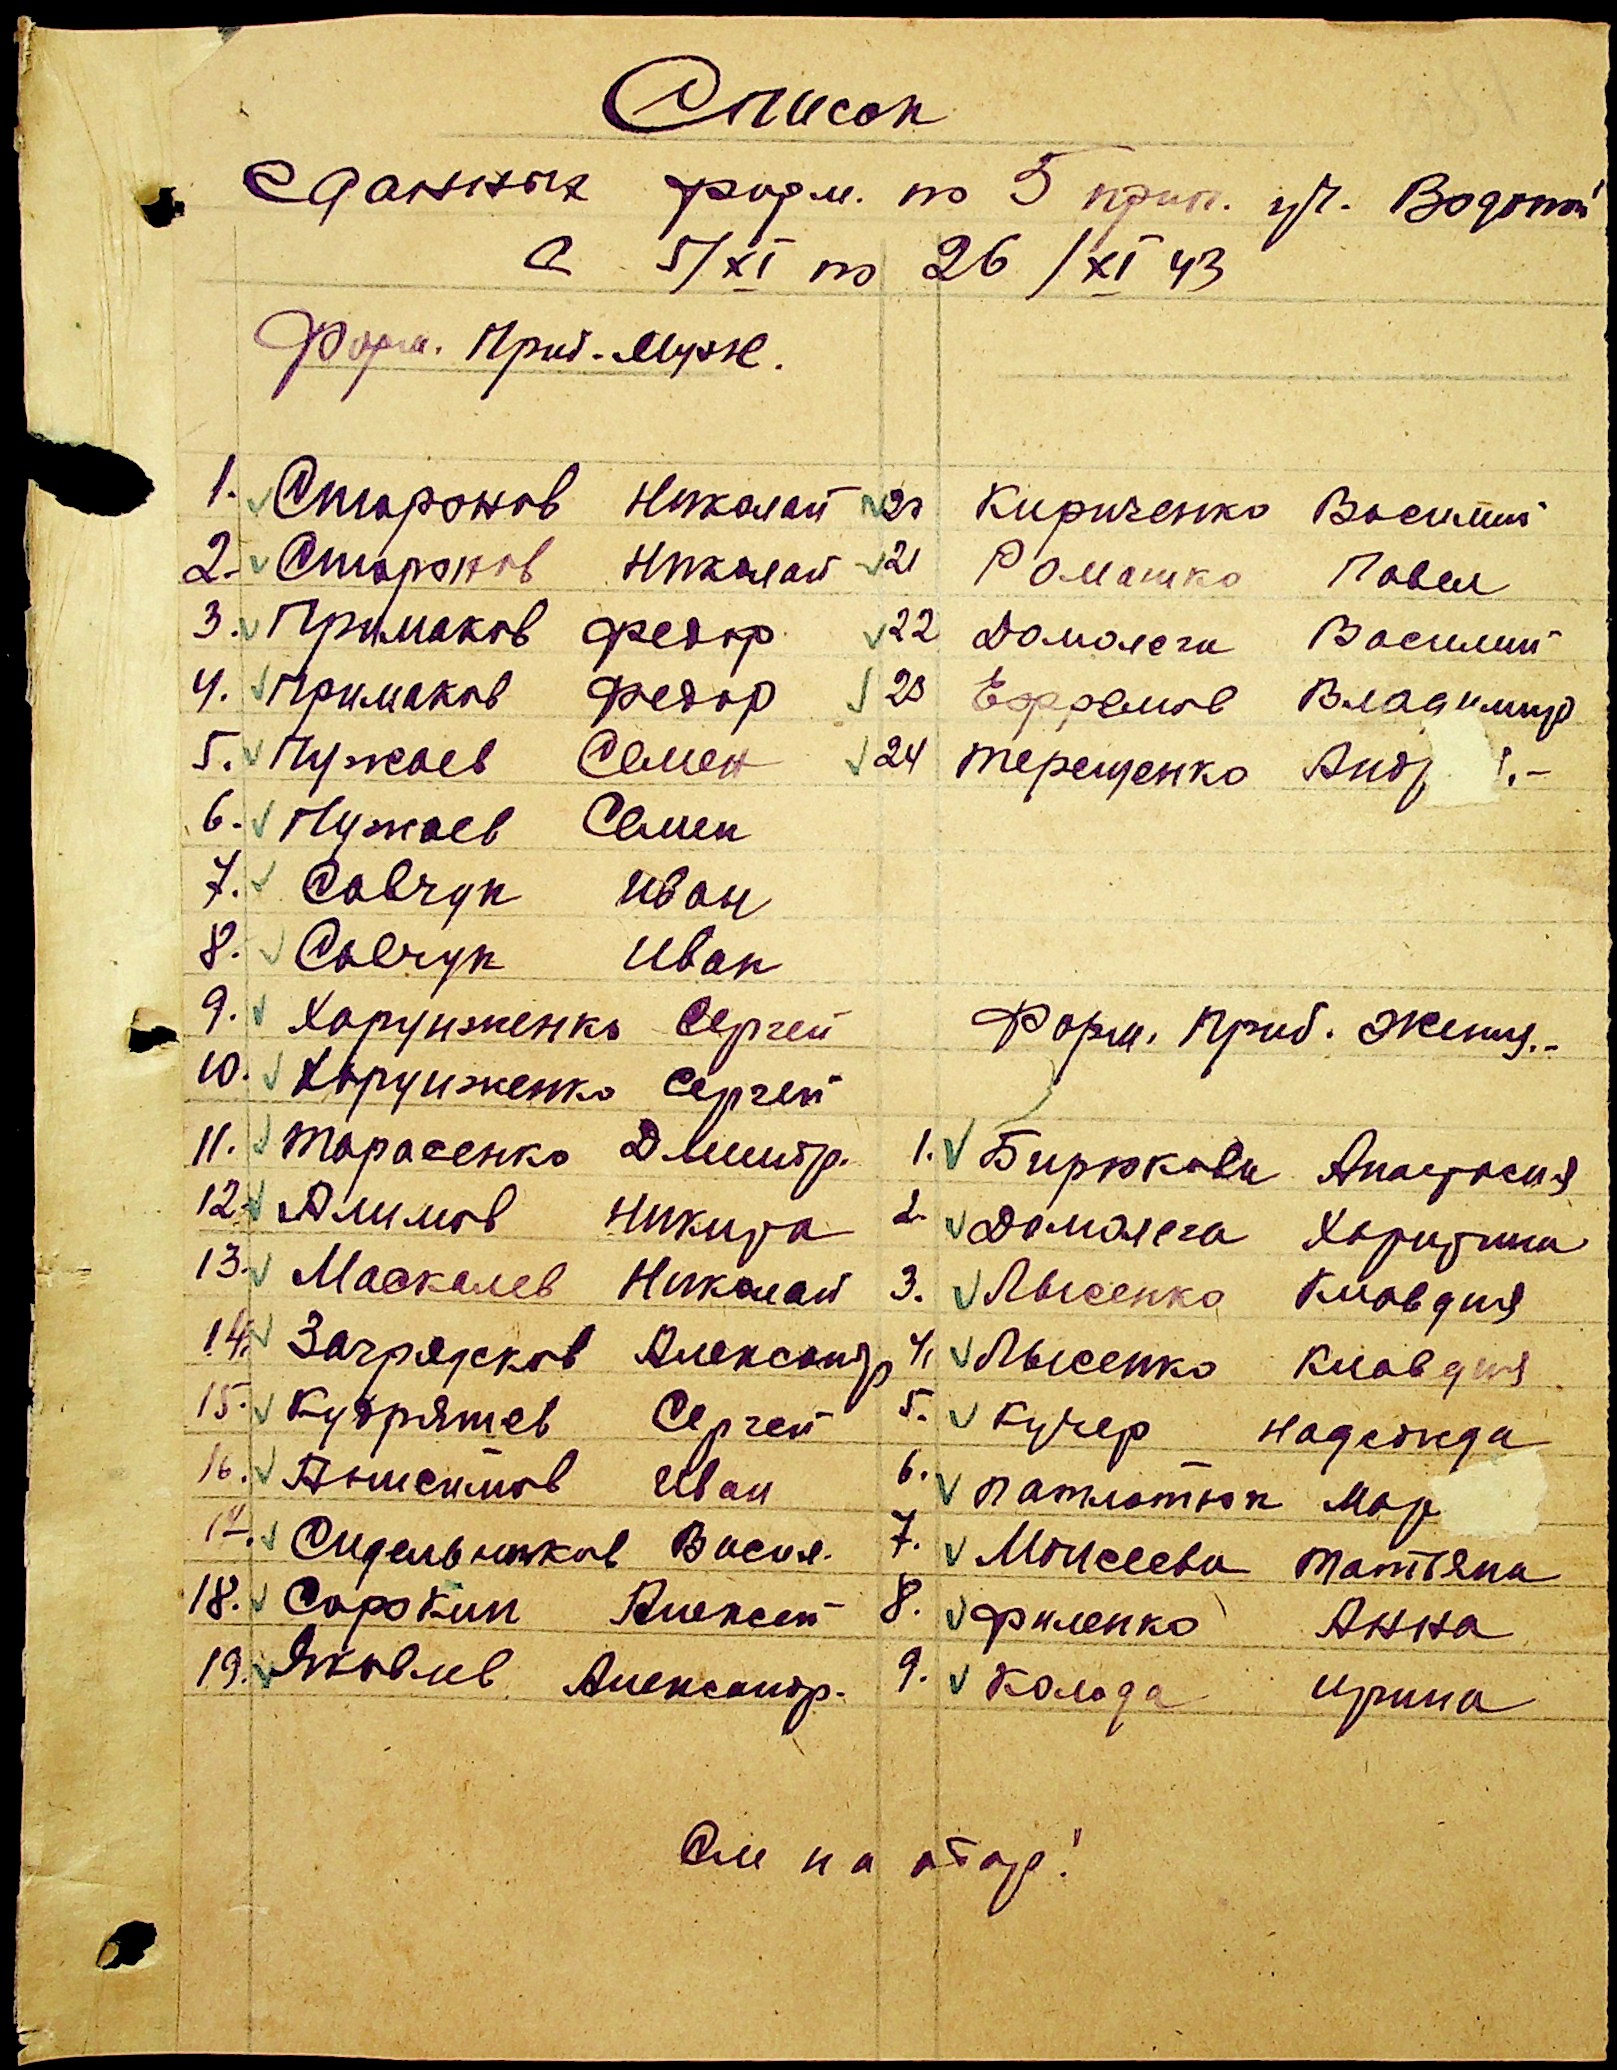 Список
сданных форм. по 5 прип. уч. Водопой
с 5/XI по 26/XI 43
Форм. Приб. Муж.
1. Старонов Николай
2. Старонов Николай
3. Примаков Федор
4. Примаков Федор
5. Пужаев Семен
6. Пужаев Семен
7. Савчук Иван
8. Савчук Иван
9. Харунженко Сергей
10. Харунженко Сергей
11. Тарасенко Дмитр.
12. Алимов Никита
13. Маскалев Николай
14. Загряжсков Александр
15. Кудряшев Сергей
16. Анисимов Иван
17. Сидельников Васил.
18. Сорокин Алексей
19. Яковлев Александр.
20 Кириченко Василий
21 Ромашко Павел
22 Домалега Василий
23 Ефремов Владимир
24 Терещенко
Форм. Приб. Женщ.-
1. Бирюкова Анастасия
2. Домалега Харитина
3. Лысенко Клавдия
4. Лысенко Клавдия
5. Кучер Надежда
6. Патлатюк Мар
7. Моисеева Татьяна
8. Филенко Анна
9. Колода Ирина
См на обор!